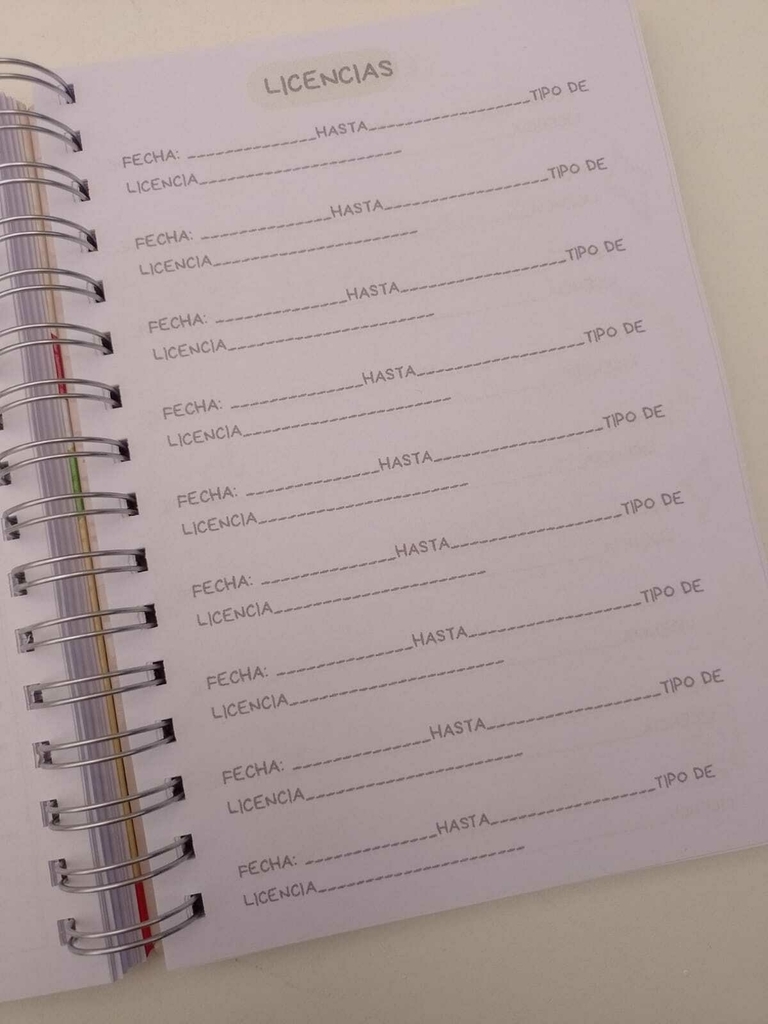 LICENCIAS
FECHA: ______________HASTA__________________TIPO DE
LICENCIA______________________
FECHA: ______________HASTA__________________TIPO DE
LICENCIA______________________
FECHA: ______________HASTA__________________TIPO DE
LICENCIA______________________
FECHA: ______________HASTA__________________TIPO DE
LICENCIA______________________
FECHA: ______________HASTA__________________TIPO DE
LICENCIA______________________
FECHA: ______________HASTA__________________TIPO DE
LICENCIA______________________
FECHA: ______________HASTA__________________TIPO DE
LICENCIA______________________
FECHA: ______________HASTA__________________TIPO DE
LICENCIA______________________
FECHA: ______________HASTA__________________TIPO DE
LICENCIA______________________